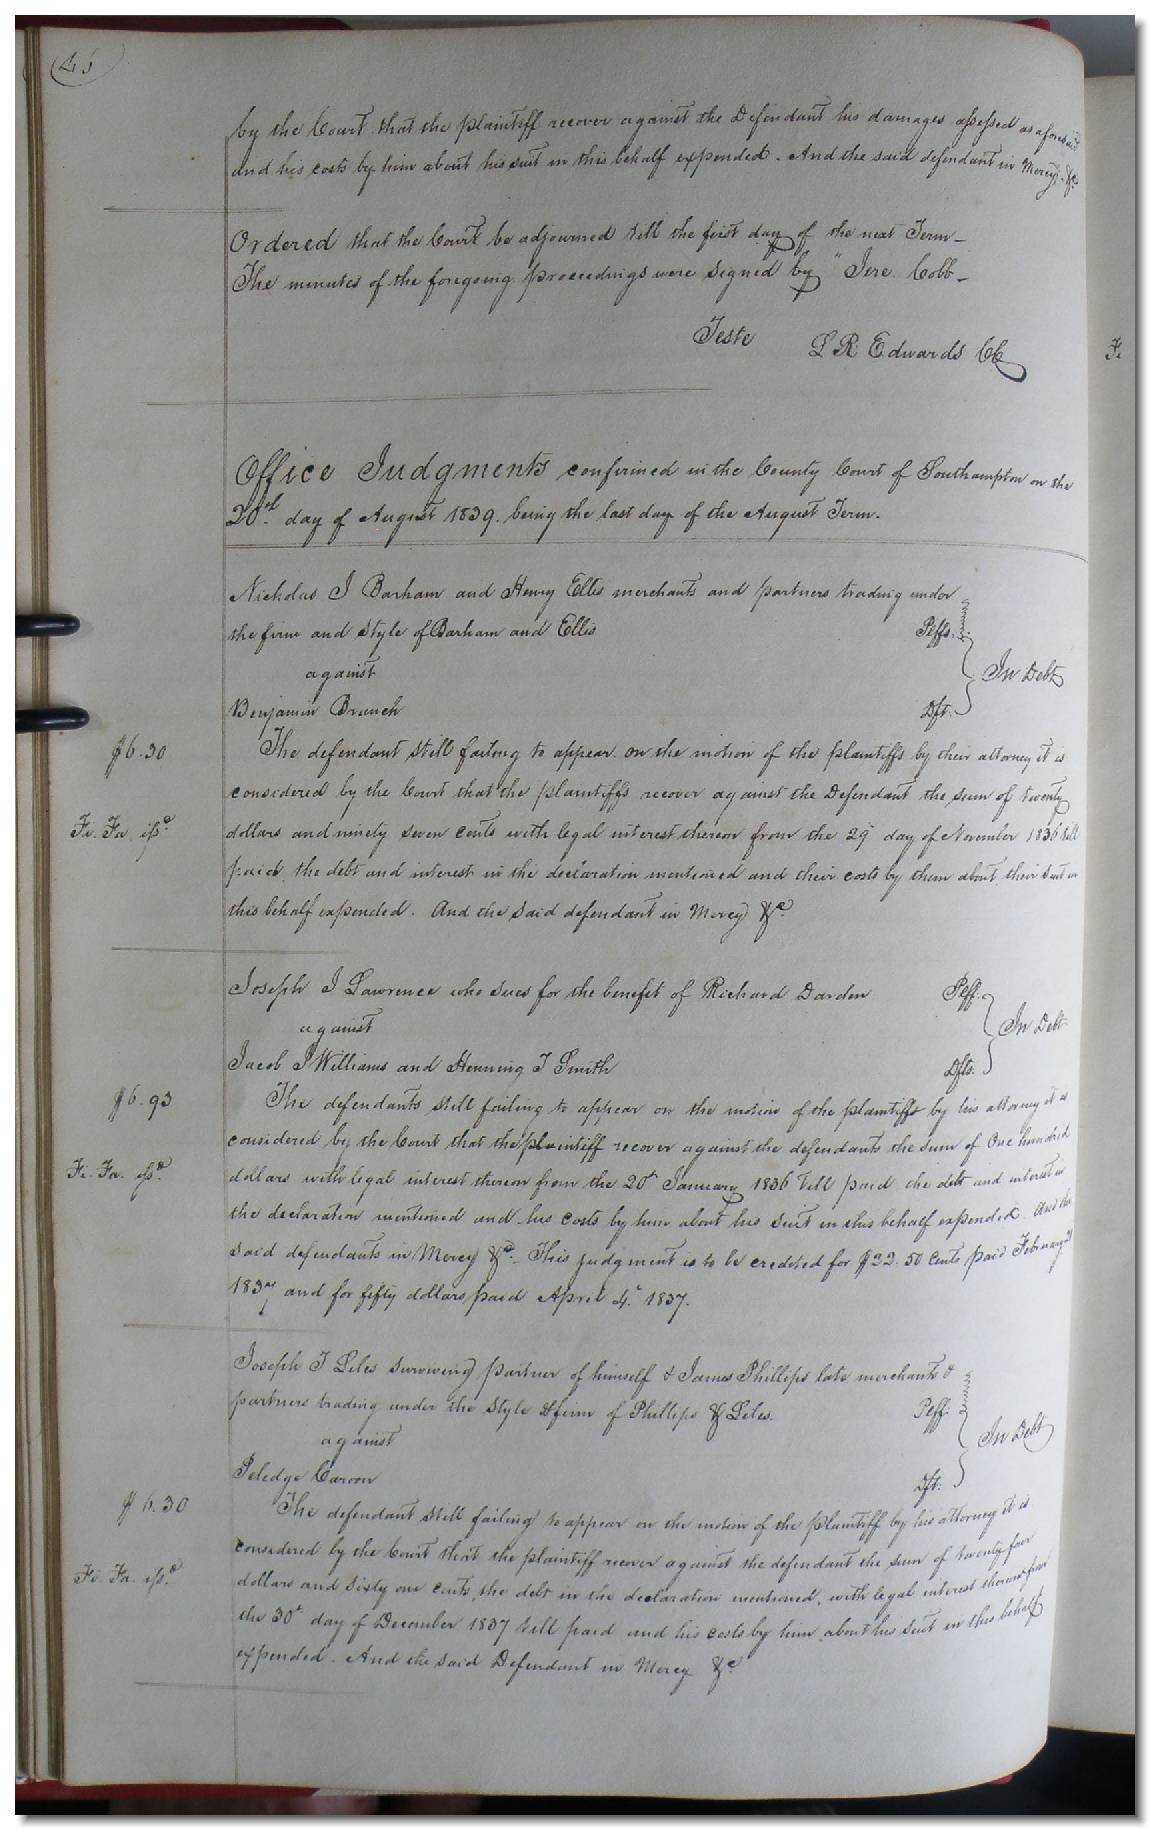 45
by the Court that the plaintiff recover against the Defendant his damages assessed as aforesaid
and his costs by him about his suit in this behalf expended. And the said defendant in Mercy &c.
Ordered that the Court be adjourned till the first day of the next Term_
The minutes of the foregoing proceedings were signed by "Jere. Cobb_
Teste L R Edwards CC
Fi.
Office Judgments confirmed in the County Court of Southampton on the
20th. day of August 1839. being the last day of the August Term.
Nicholas J Barham and Henry Ellis merchants and partners trading under
the firm and style of Barham and Ellis Pltffs.
against In Debt
Benjamin Branch Dft.
$6.30
The defendant still failing to appear. on the motion of the plaintiffs by their attorney it is
considered by the Court that the plaintiffs recover against the Defendant the sum of twenty
Fi. Fa issd.
dollars and ninety seven cents with legal interest thereon from the 29 day of November 1836 till
paid, the debt and interest in the declaration mentioned and their costs by them about their suit in
this behalf expended. And the said defendant in Mercy &c.
Joseph J Lawrence who sues for the benefit of Richard Darden Pltff.
against In Debt
Jacob J Williams and Henning T Smith Dfts.
$6.93
The defendants still failing to appear on the motion of the plaintiffs by his attorney it is
considered by the Court that the plaintiff recover against the defendants the sum of One hundred
Fi. Fa. issd.
dollars with legal interest thereon from the 20th January 1836 till paid the debt and interest in
the declaration mentioned and his costs by him about his suit in this behalf expended. And the
said defendants in Mercy &c._ This judgment is to be credited for $22.50 Cents paid February
1837 and for fifty dollars paid April 4th. 1837.
Joseph T Liles surviving partner of himself & James Phillips late merchants &
partners trading under the style & firm of Phillips & Liles. Pltff.
against In Debt
Dft.
$6.30
The defendant still failing to appear on the motion of the Plaintiff by his attorney it is
considered by the Court that the plaintiff recover against the defendant the sum of twenty four
Fi. Fa. issd.
dollars and sixty one cents, the debt in the declaration mentioned, with legal interest thereon from
the 30th day of December 1837 till paid and his costs by him about his suit in this behalf
expended. And the said Defendant in Mercy &c